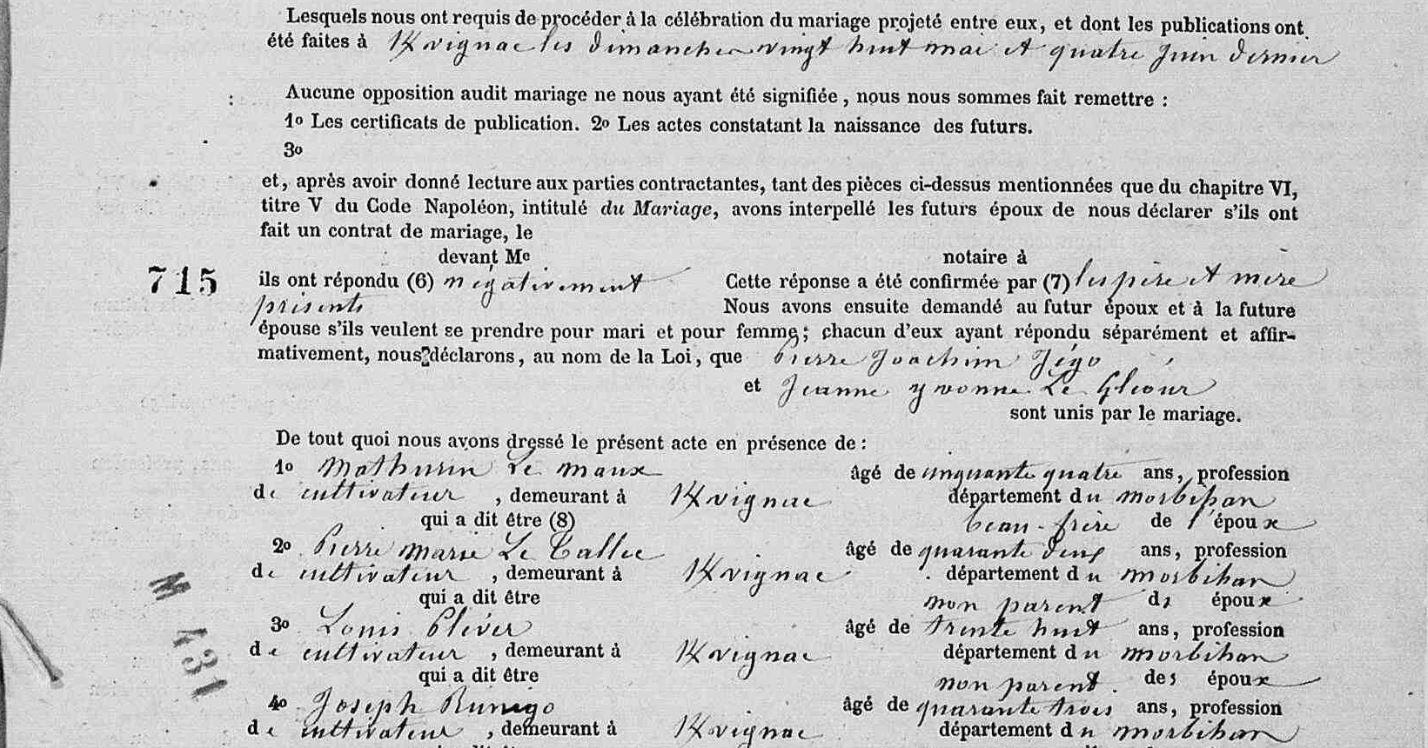 Lesquels nous ont requis de procéder à la célébration du mariage projeté entre eux, et dont les publications ont
été faites à Kvignac les dimanches vingt huit mai et quatre juin dernier
Aucune opposition audit mariage ne nous ayant été signifiée, nous nous sommes fait remettre :
1o Les certificats de publication. 2o Les actes constatant la naissance des futurs.
3o
et, après avoir donné lecture aux parties contractantes, tant des pièces ci-dessus mentionnées que du chapitre VI,
titre V du Code Napoléon, intitulé du Mariage, avons interpellé les futurs époux de nous déclarer s'ils ont
fait un contrat de mariage, le
devant Me notaire à
715 ils ont répondu (6) négativement Cette réponse a été confirmée par (7) les père et mère
présents Nous avons ensuite demandé au futur époux et à la future
épouse s'ils veulent se prendre pour mari et pour femme; chacun d'eux ayant répondu séparément et affir-
mativement, nous déclarons, au nom de la Loi, que Pierre Joachim Jégo
et Jeanne yvonne Le Gléour
sont unis par le mariage.
De tout quoi nous avons dressé le présent acte en présence de :
1o Mathurin Le maux âgé de cinquante quatre ans, profession
de cultivateur, demeurant à Kvignac département du morbihan
qui a dit être (8) beau-frère de l'époux
2o Pierre marie Le Tallec âgé de quarante deux ans, profession
de cultivateur, demeurant à Kvignac département du morbihan
qui a dit être non parent des époux
3o Louis âgé de trente huit ans, profession
de cultivateur, demeurant à Kvignac département du morbihan
qui a dit être non parent des époux
M 431
4o Joseph Runigo âgé de quarante trois ans, profession
de cultivateur, demeurant à Kvignac département du morbihan